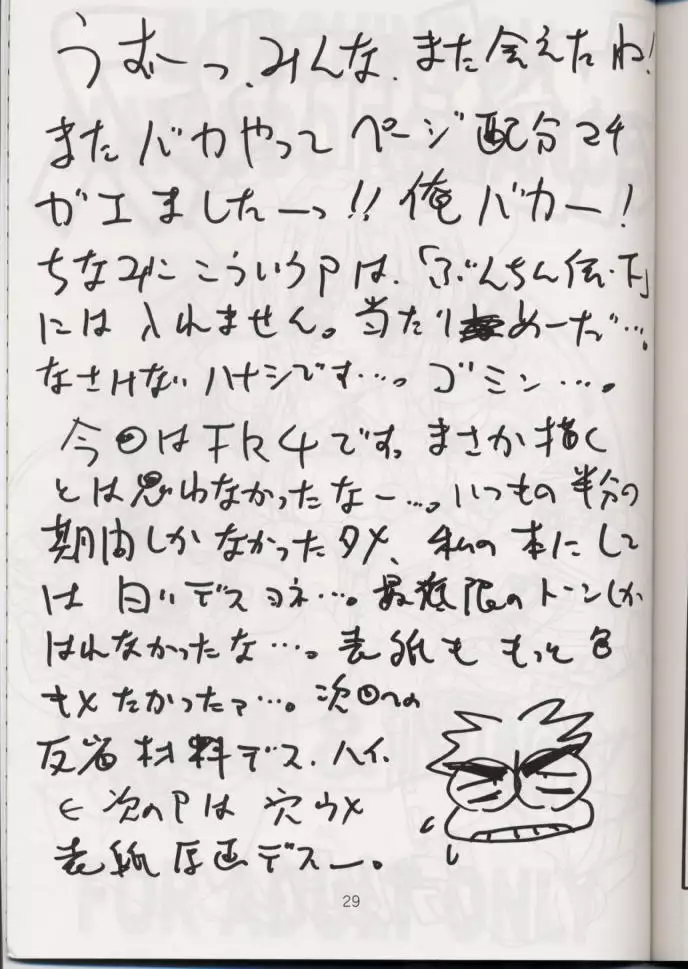 うむーっ、みんな、また会えたね!
またバカやってページ配分マチ
ガエましたーっ!!俺バカー!
ちなみにこういうPは、「ぶんちん伝・下」
には入れません。当たりめーだ…。
なさけないハナシです…。ゴミン…。
今回はFR4です。まさか描く
とは思わなかったなー…。いつもの半分の
期間しかなかったタメ、私の本にして
は白いデスヨネ…。最低限のトーンしか
はれなかったな…。表紙ももっと色
キメたかったァ…。次回への
反省材料デス、ハイ、
←次のPは穴ウメ
表紙原画デスー。
29